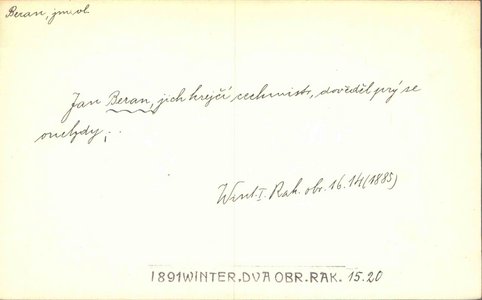 Beran, jm. vl.
Jan Beran, jich krejčí cechmistr, dověděl prý se
onehdy,..
Wint. I. Rak. obr. 16.14 (1885)
1891WINTER.DVA OBR.RAK. 15.20